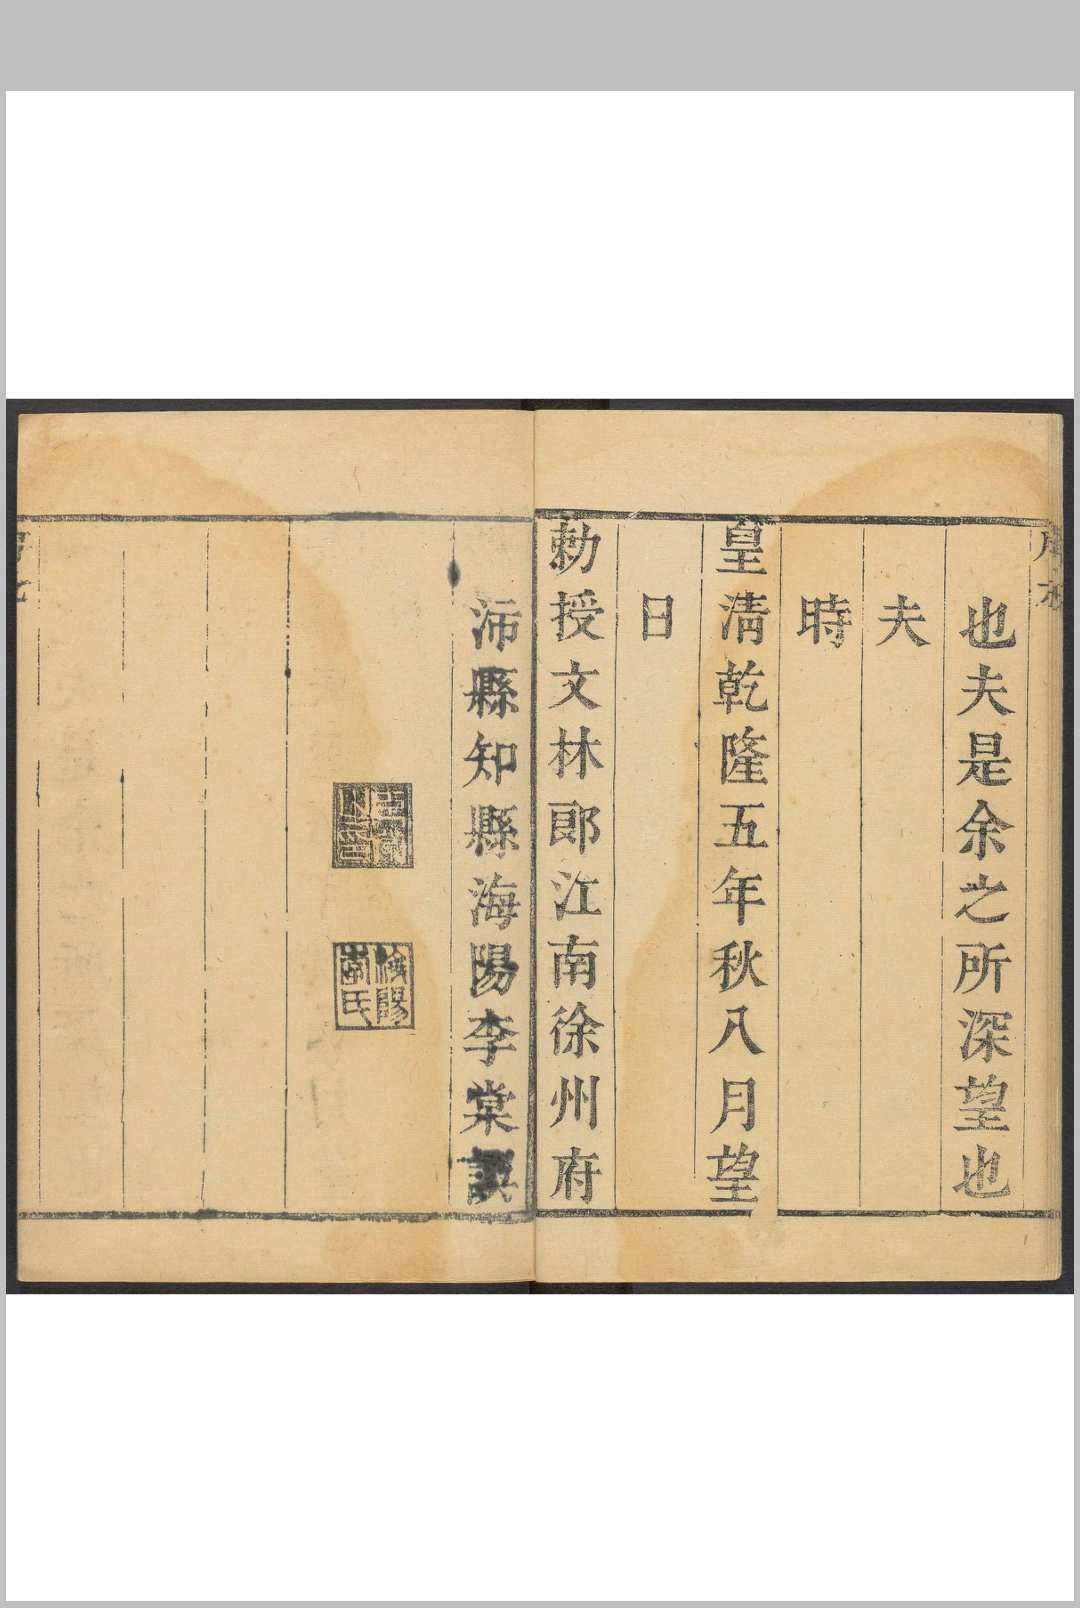 也夫是余之所深望也
夫
時
皇淸乾隆五年秋八月望
日
勅授文林郎江南徐州府
沛縣知縣海陽李棠
海陽
李氏